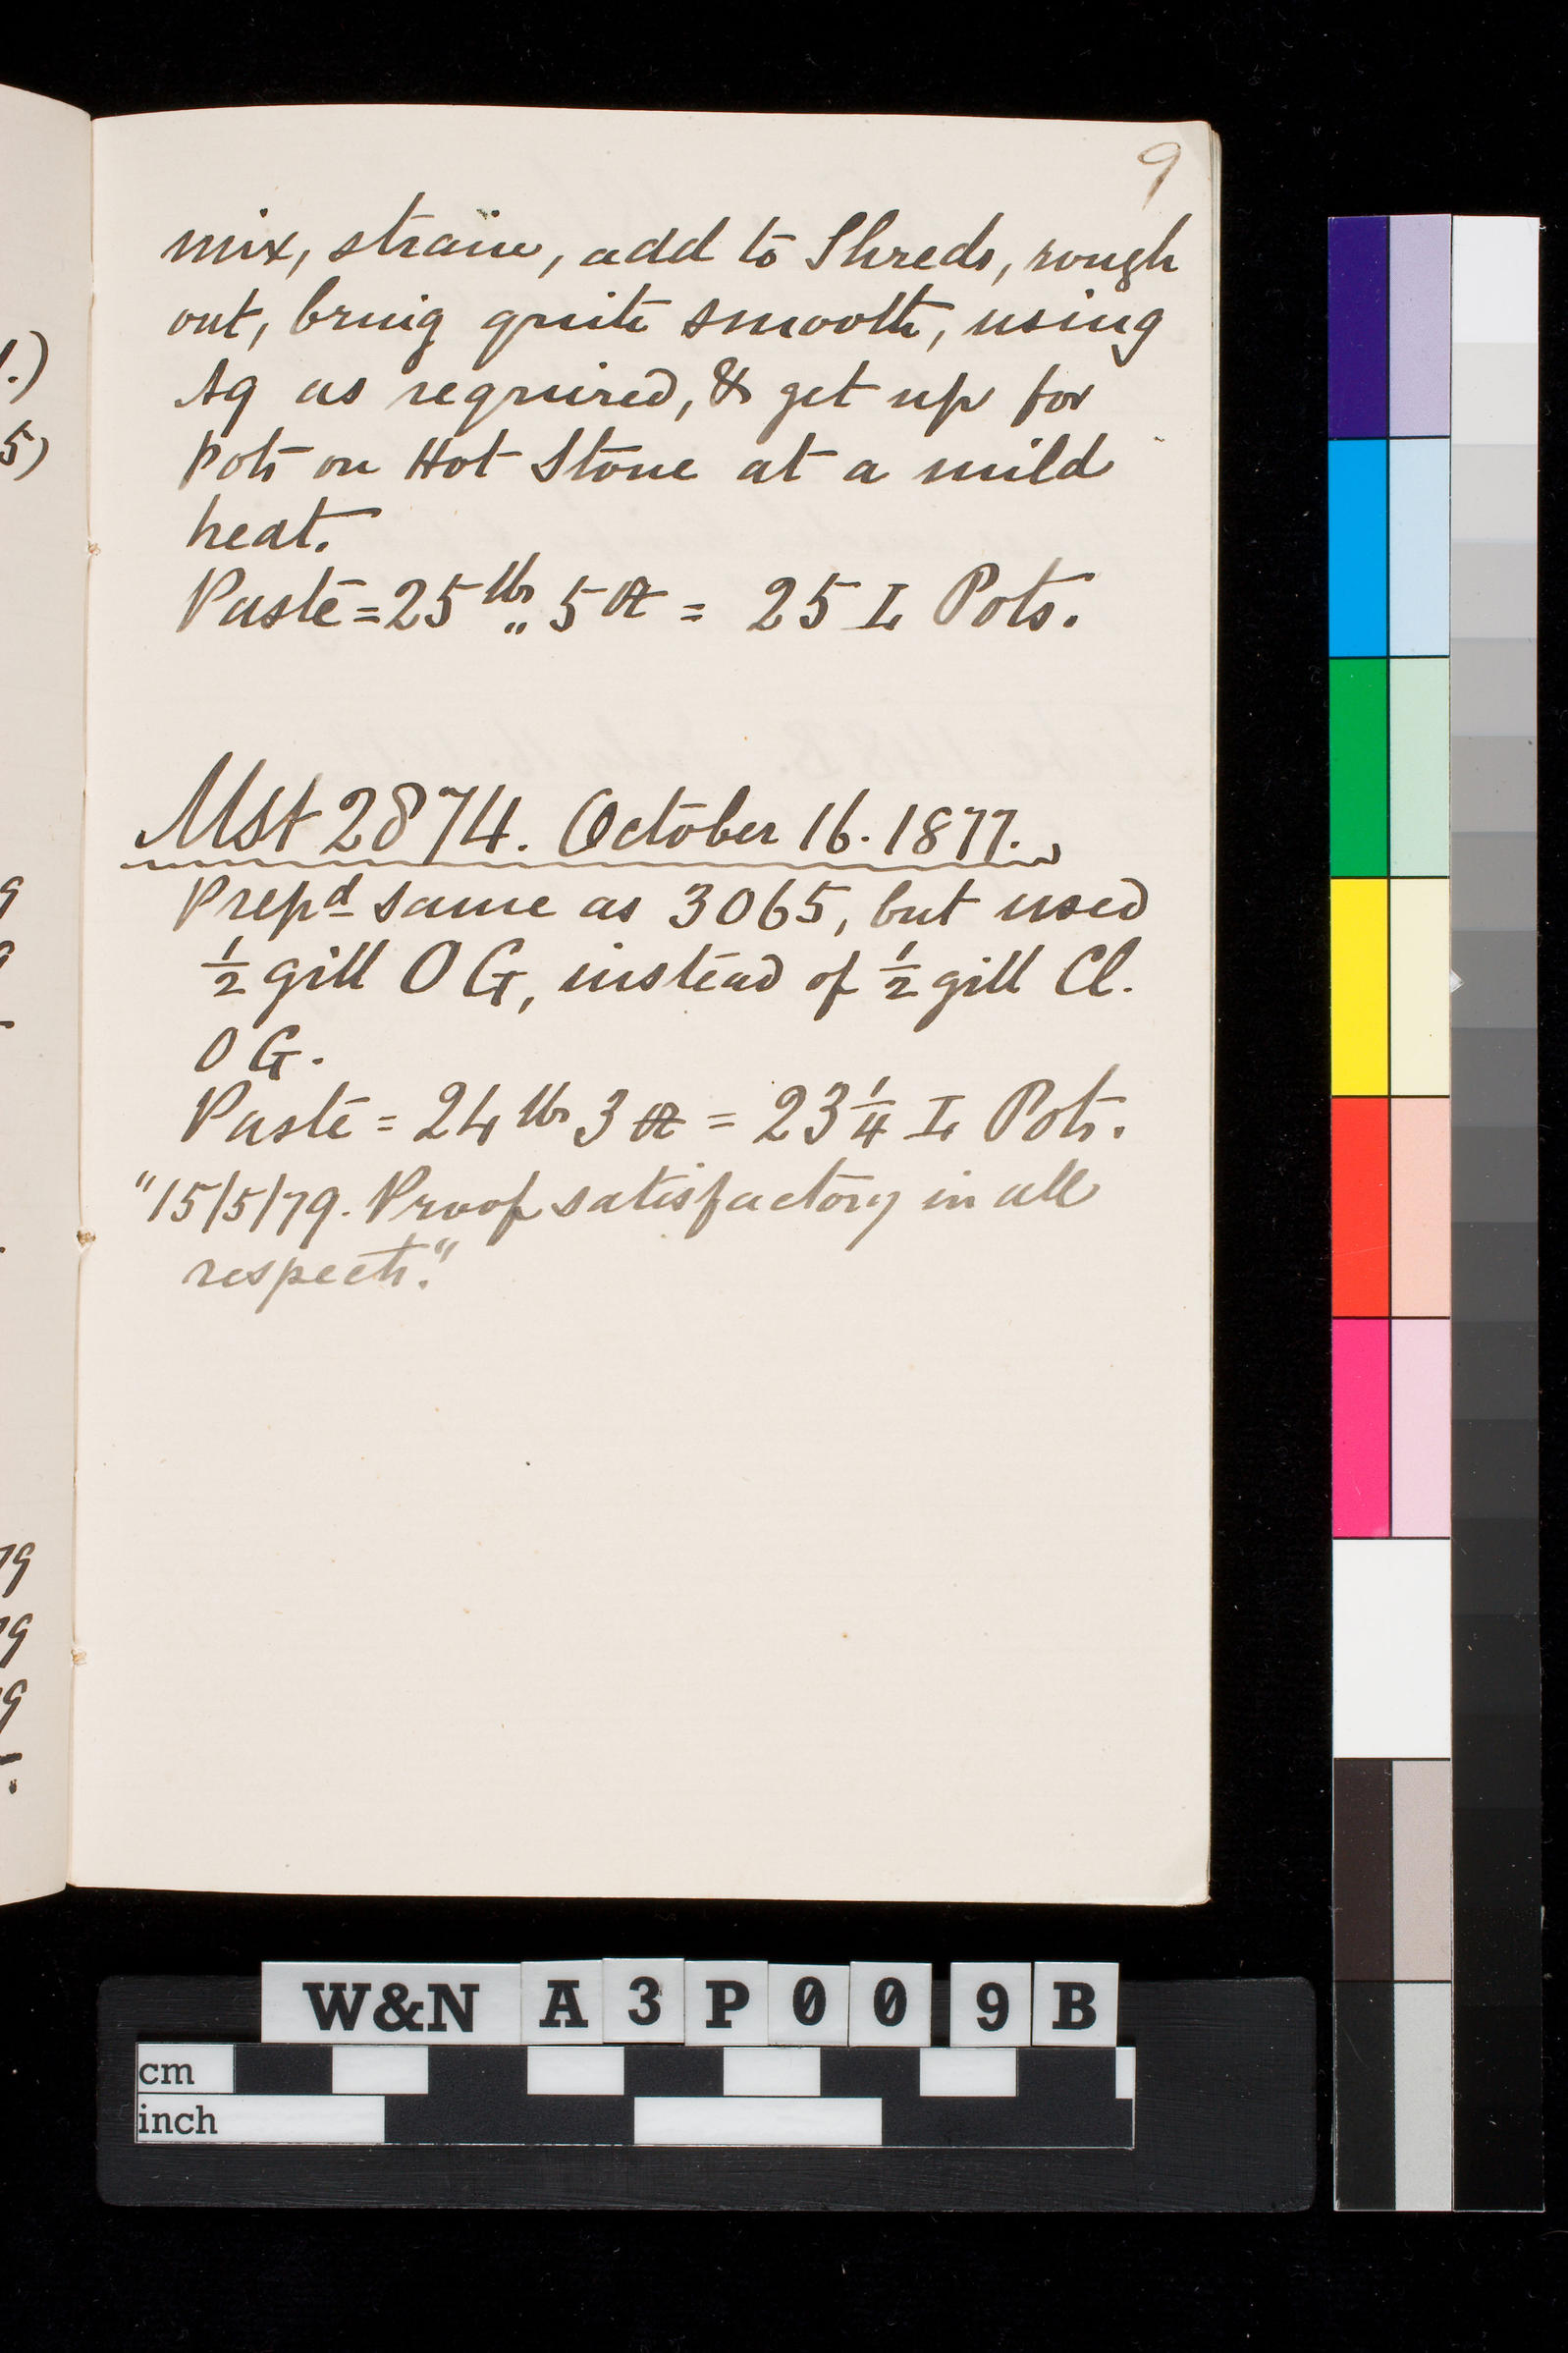 9
mix, strain, add to Shreds, rough
out, bring quite smooth, using
Aq as required, & get up for
pots on Hot Stone at a mild
heat.
Paste = 25 lbs 5 oz = 25 L Pots.
Mst 2874. October 16. 1877.
Prepd same as 3065, but used
½ gill O G, instead of ½ gill Cl.
O G.
Paste = 24 lbs 3 oz = 23 ¼ L Pots.
"15/5/79. Proof satisfactory in all
respects."
1.)
5)
9
9
79
79
9
W&N A3P009B
cm
inch